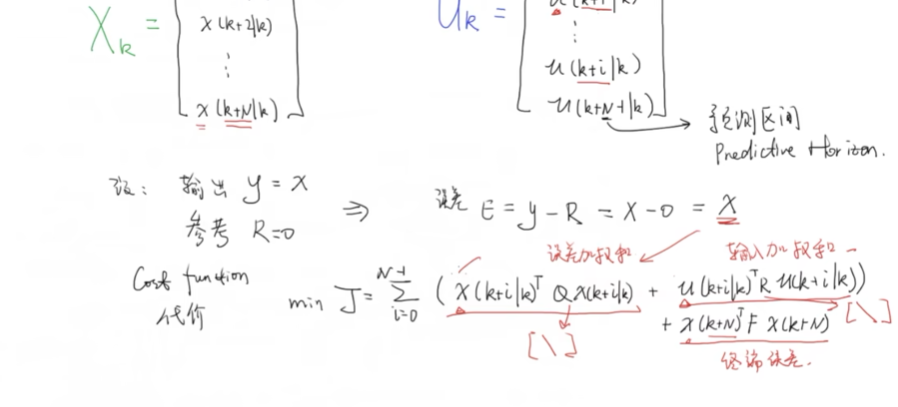 X_k = [ x(k+2|k) ⋮ x(k+N|k) ]
U_k = [ u(k+1|k) ⋮ u(k+i|k) u(k+N-1|k) ]
预测区间
Predictive Horizon.
设: 输出 y = x
参考 R=0
⇒ 误差 E = y - R = x - 0 = x
误差加权和
输入加权和
Cost function
代价
min J = Σ_{i=0}^{N-1} ( x(k+i|k)^T Q x(k+i|k) + u(k+i|k)^T R u(k+i|k))
[\] + x(k+N)^T F x(k+N) [\]
终端误差.